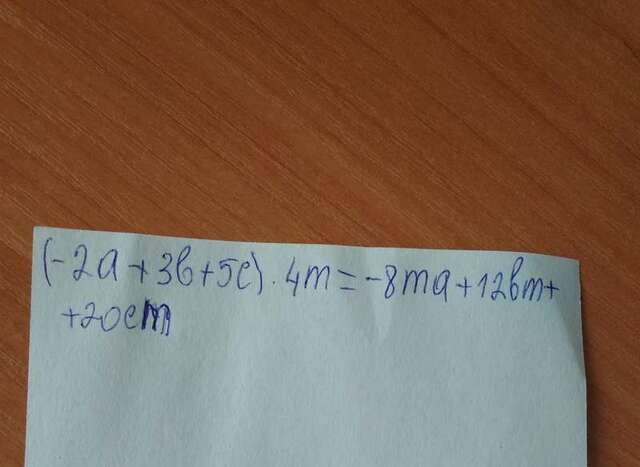 (-2a+3b+5c)·4m=-8ma+12bm+
+20cm